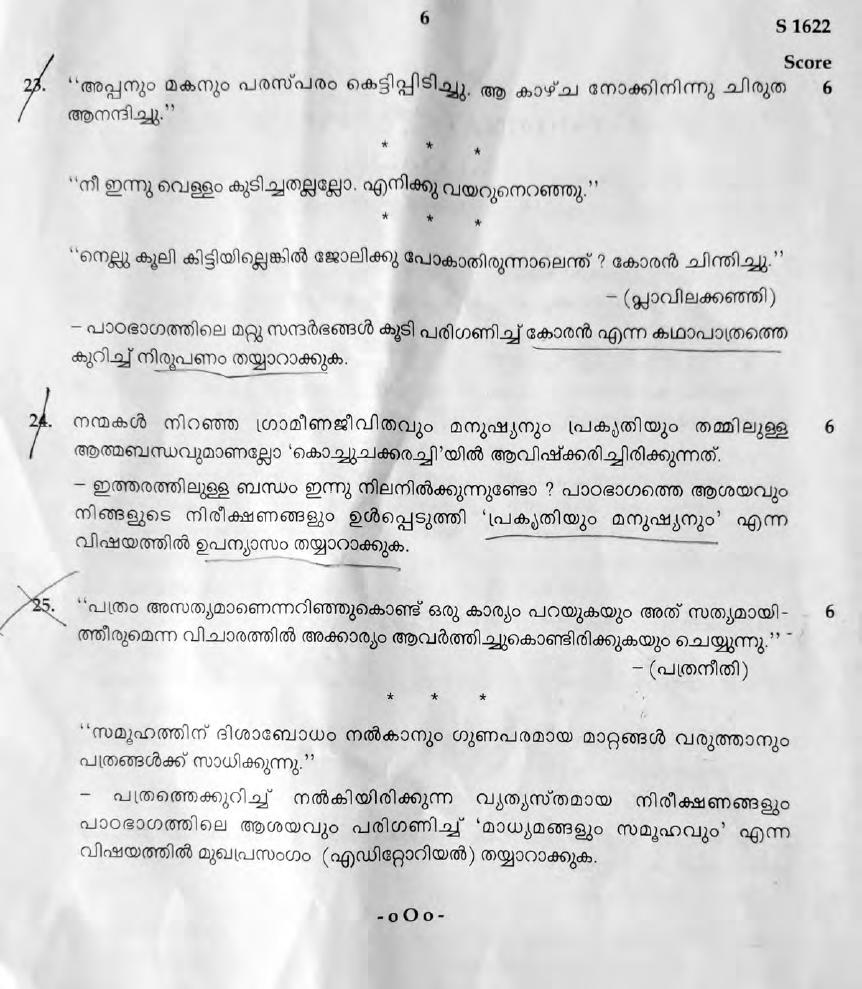 6
S 1622
Score
23. "അപ്പനും മകനും പരസ്പരം കെട്ടിപ്പിടിച്ചു. ആ കാഴ്ച നോക്കിനിന്നു ചിരുത 6
ആനന്ദിച്ചു."
* * *
"നീ ഇന്നു വെള്ളം കുടിച്ചതല്ലല്ലോ. എനിക്കു വയറുനെറഞ്ഞു."
* * *
"നെല്ലു കൂലി കിട്ടിയില്ലെങ്കിൽ ജോലിക്കു പോകാതിരുന്നാലെന്ത് ? കോരൻ ചിന്തിച്ചു."
– (പ്ലാവിലക്കഞ്ഞി)
– പാഠഭാഗത്തിലെ മറ്റു സന്ദർഭങ്ങൾ കൂടി പരിഗണിച്ച് കോരൻ എന്ന കഥാപാത്രത്തെ
കുറിച്ച് നിരൂപണം തയ്യാറാക്കുക.
24. നന്മകൾ നിറഞ്ഞ ഗ്രാമീണജീവിതവും മനുഷ്യനും പ്രകൃതിയും തമ്മിലുള്ള 6
ആത്മബന്ധവുമാണല്ലോ 'കൊച്ചുചക്കരച്ചി'യിൽ ആവിഷ്ക്കരിച്ചിരിക്കുന്നത്.
– ഇത്തരത്തിലുള്ള ബന്ധം ഇന്നു നിലനിൽക്കുന്നുണ്ടോ ? പാഠഭാഗത്തെ ആശയവും
നിങ്ങളുടെ നിരീക്ഷണങ്ങളും ഉൾപ്പെടുത്തി 'പ്രകൃതിയും മനുഷ്യനും' എന്ന
വിഷയത്തിൽ ഉപന്യാസം തയ്യാറാക്കുക.
25. "പത്രം അസത്യമാണെന്നറിഞ്ഞുകൊണ്ട് ഒരു കാര്യം പറയുകയും അത് സത്യമായി- 6
ത്തീരുമെന്ന വിചാരത്തിൽ അക്കാര്യം ആവർത്തിച്ചുകൊണ്ടിരിക്കുകയും ചെയ്യുന്നു."
– (പത്രനീതി)
* * *
"സമൂഹത്തിന് ദിശാബോധം നൽകാനും ഗുണപരമായ മാറ്റങ്ങൾ വരുത്താനും
പത്രങ്ങൾക്ക് സാധിക്കുന്നു."
– പത്രത്തെക്കുറിച്ച് നൽകിയിരിക്കുന്ന വ്യത്യസ്തമായ നിരീക്ഷണങ്ങളും
പാഠഭാഗത്തിലെ ആശയവും പരിഗണിച്ച് 'മാധ്യമങ്ങളും സമൂഹവും' എന്ന
വിഷയത്തിൽ മുഖപ്രസംഗം (എഡിറ്റോറിയൽ) തയ്യാറാക്കുക.
-oOo-